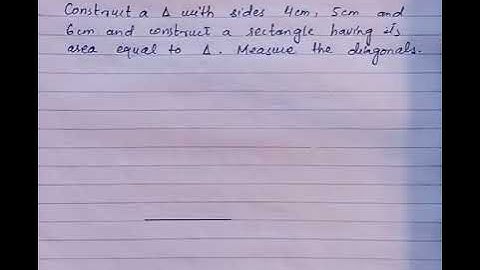 Construct a Δ with sides 4cm, 5cm and
6cm and construct a rectangle having its
area equal to Δ. Measure the diagonals.